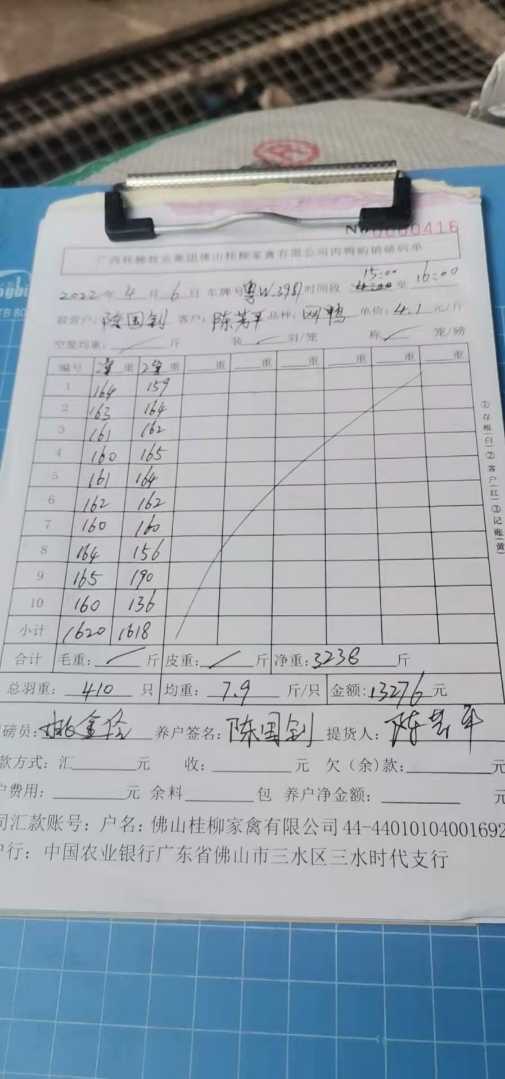 No 0000416
广西桂柳牧业集团佛山桂柳家禽有限公司肉鸭购销磅码单
2022年 4 月 6 日 车牌号 时间段 15:00 4:00 至 16:00
客户: 陈芳平 品种: 单价: 4.1 元/斤
空笼均重: 斤 装 羽/笼 称 笼/磅
编号 重 重 重 重 重 重 重 重
1 164 159
2 163 164
3 161 162
4 160 165
5 161 164
6 162 162
7 160 160
8 164 156
9 165 190
10 160 136
小计 1620 1618
合计 毛重: 斤 皮重: 斤 净重: 3238 斤
总羽重: 410 只 均重: 7.9 斤/只 金额: 13276 元
磅员: 养户签名: 陈国钊 提货人: 陈芳平
款方式: 汇 元 收: 元 欠(余)款: 元
户费用: 元 余料 包 养户净金额: 元
司汇款账号: 户名: 佛山桂柳家禽有限公司 44-44010104001692
户行: 中国农业银行广东省佛山市三水区三水时代支行
①存根(白)②客户(红)③记账(黄)